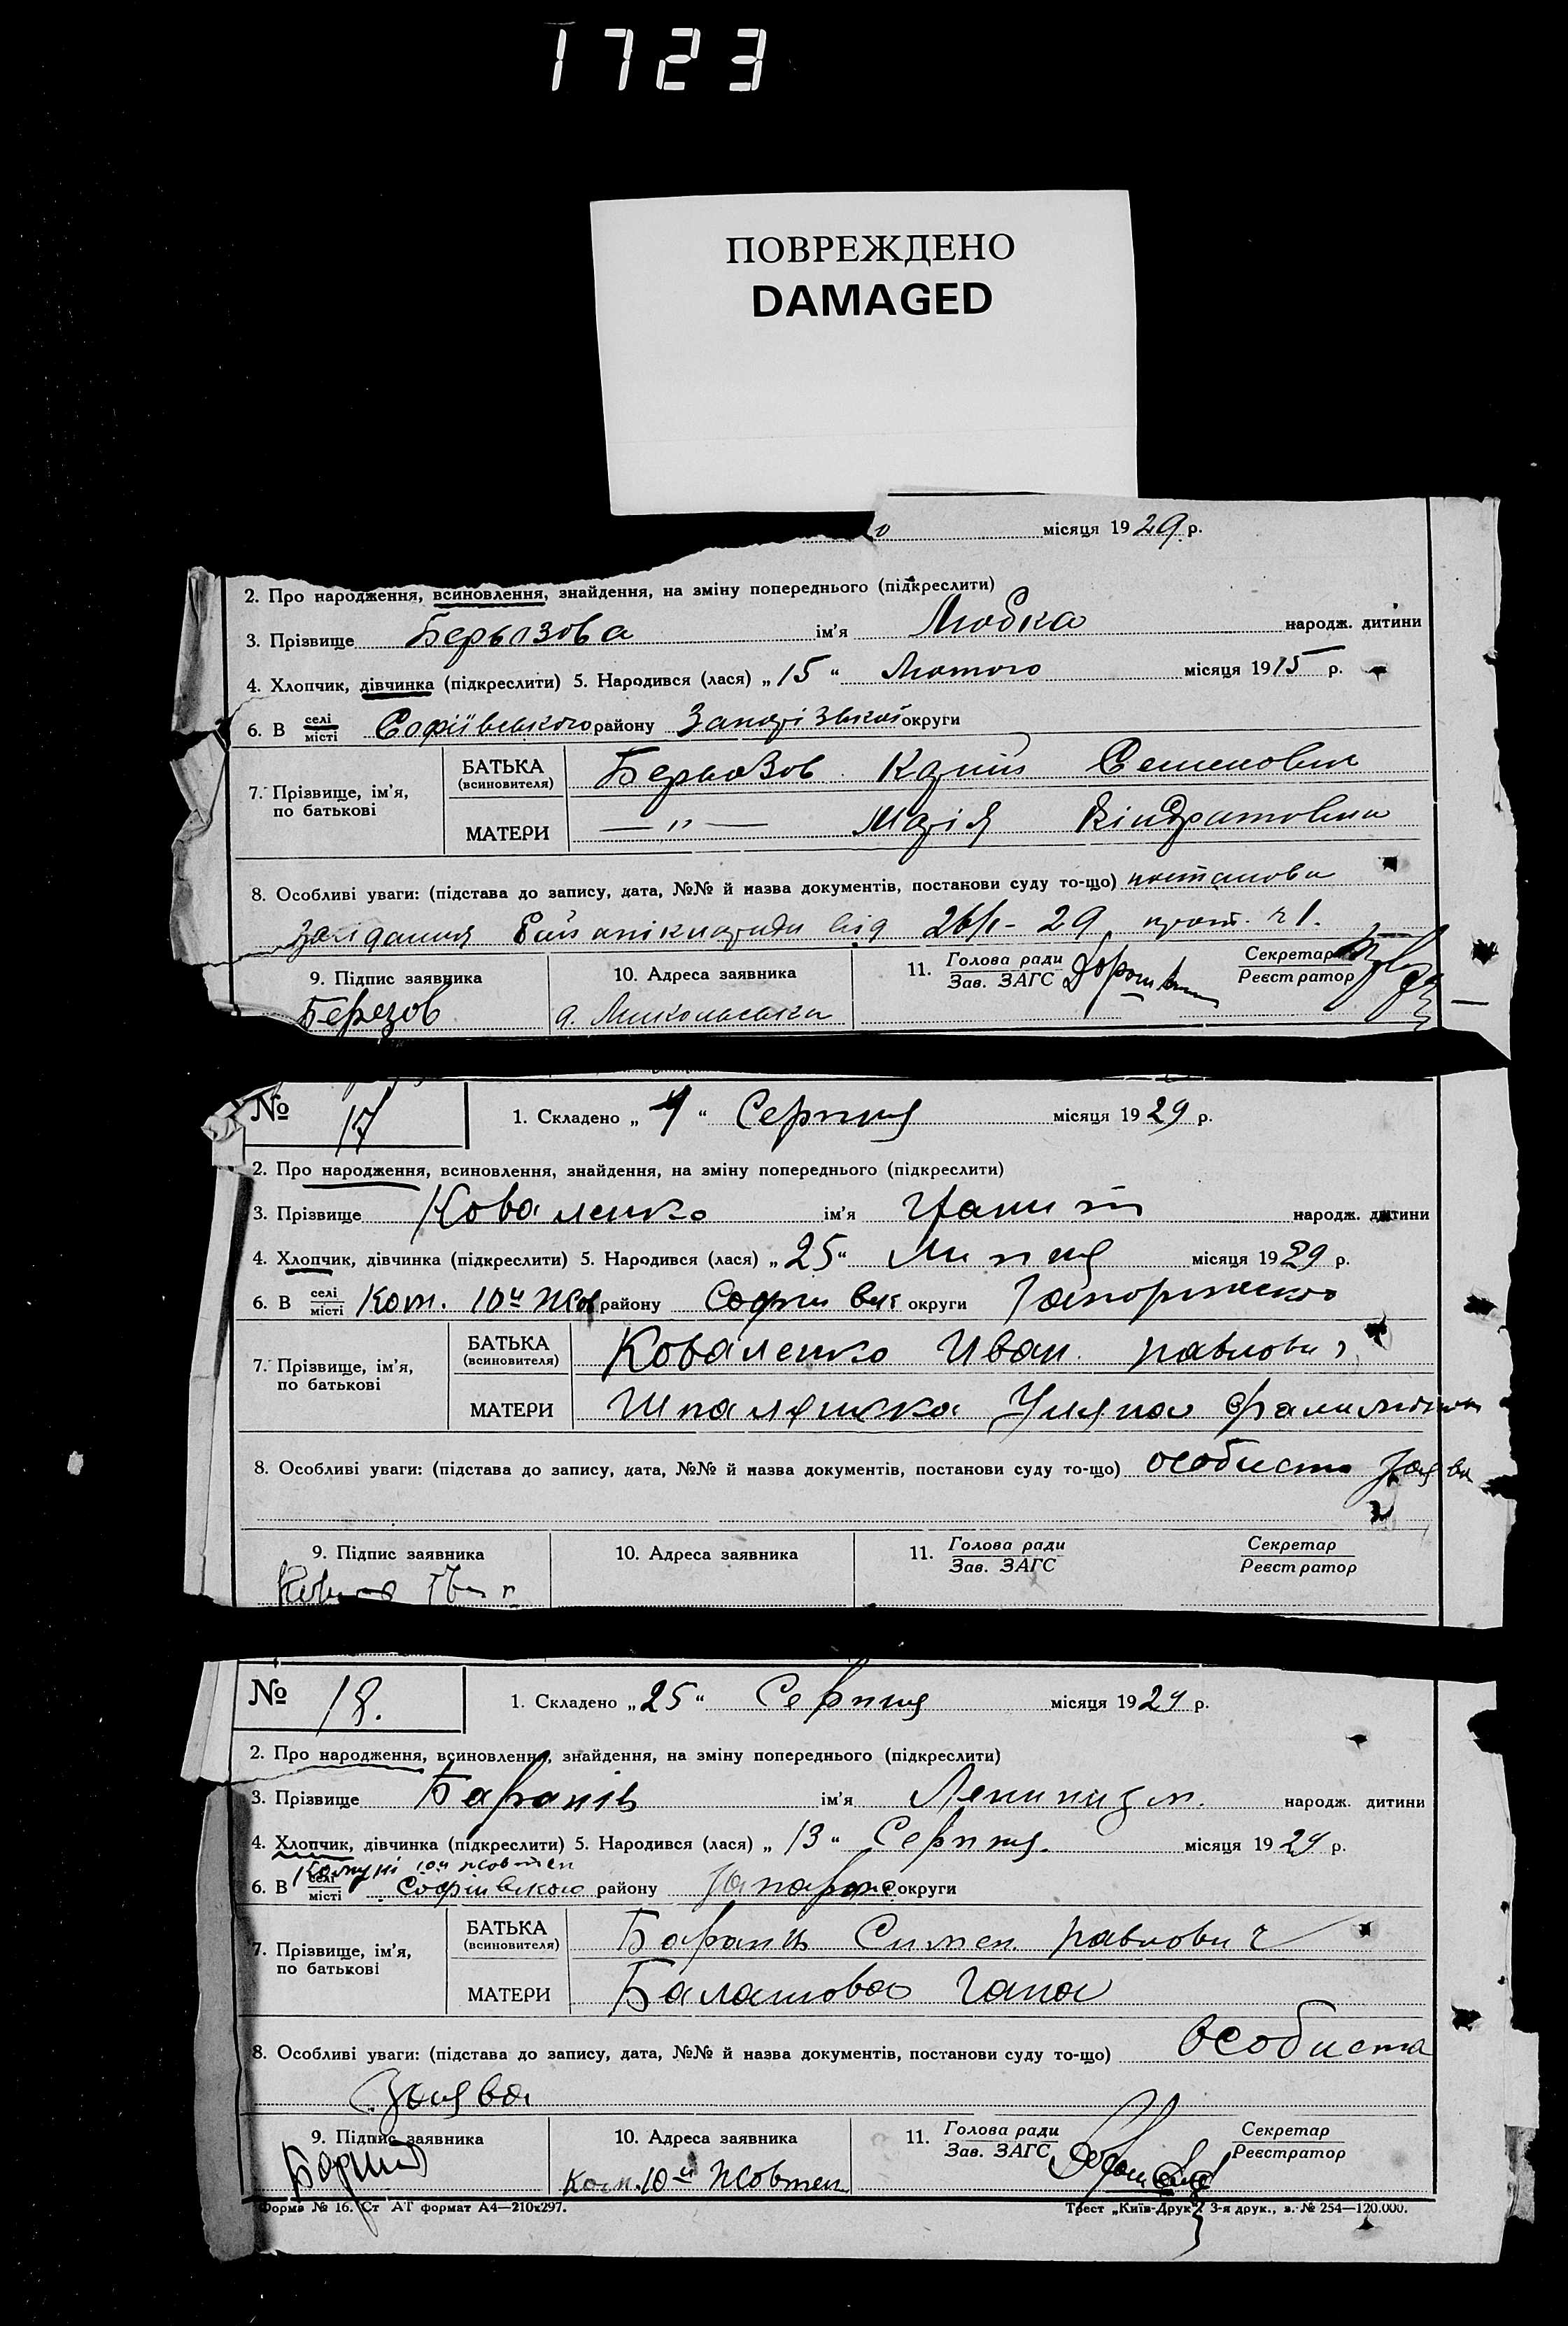 1723
ПОВРЕЖДЕНО
DAMAGED
місяця 1929 р.
2. Про народження, всиновлення, знайдення, на зміну попереднього (підкреслити)
3. Прізвище Берьозова ім'я Любка народж. дитини
4. Хлопчик, дівчинка (підкреслити) 5. Народився (лася) „15“ Лютого місяця 1915 р.
6. В селі місті Софіївського району округи
БАТЬКА Берьозов Семенович
(всиновителя)
7. Прізвище, ім'я,
по батькові
МАТЕРИ — " — Марія Кіндратовна
8. Особливі уваги: (підстава до запису, дата, №№ й назва документів, постанови суду то-що) постанова
засідання від 26/I - 29 прот. ч 1.
9. Підпис заявника 10. Адреса заявника 11. Голова ради Зав. ЗАГС Секретар Реєстратор
Березов
№ 17 1. Складено „4“ Серпня місяця 1929 р.
2. Про народження, всиновлення, знайдення, на зміну попереднього (підкреслити)
3. Прізвище Коваленко ім'я народж. дитини
4. Хлопчик, дівчинка (підкреслити) 5. Народився (лася) „25“ Липня місяця 1929 р.
6. В селі місті Ком. 10й Жов району округи
БАТЬКА Коваленко Иван павлович
(всиновителя)
7. Прізвище, ім'я,
по батькові
МАТЕРИ Уляна
8. Особливі уваги: (підстава до запису, дата, №№ й назва документів, постанови суду то-що) особиста заява
9. Підпис заявника 10. Адреса заявника 11. Голова ради Зав. ЗАГС Секретар Реєстратор
№ 18. 1. Складено „25“ Серпня місяця 1929 р.
2. Про народження, всиновлення, знайдення, на зміну попереднього (підкреслити)
3. Прізвище Баранів ім'я народж. дитини
4. Хлопчик, дівчинка (підкреслити) 5. Народився (лася) „13“ Серпня місяця 1929 р.
Комуні 10й жовтен
6. В селі місті Софіївского району округи
БАТЬКА Баранів Симен павлович
(всиновителя)
7. Прізвище, ім'я,
по батькові
МАТЕРИ Балашова Гана
8. Особливі уваги: (підстава до запису, дата, №№ й назва документів, постанови суду то-що) особиста
заява
9. Підпис заявника 10. Адреса заявника 11. Голова ради Зав. ЗАГС Секретар Реєстратор
Ком. 10й Жовтен
Форма № 16. Ст АТ формат А4—210х297. Трест „Київ-Друк“ 3-я друк., з. № 254—120.000.